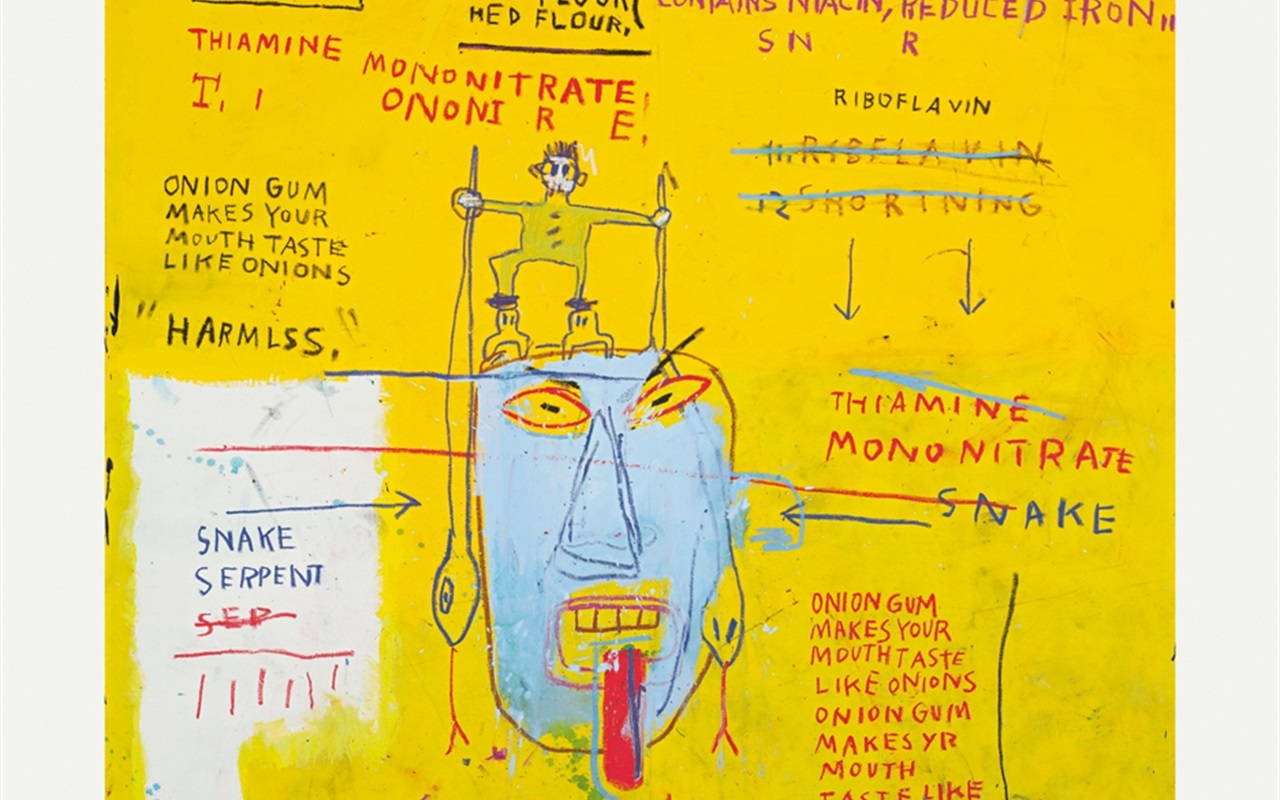 HED FLOUR,
CONTAINS NIACIN, REDUCED IRON,,
S N R
THIAMINE
MONONITRATE,
T, I
ONONI R E,
RIBOFLAVIN
11.RIBFLAVIN
12 SHORTNING
ONION GUM
MAKES YOUR
MOUTH TASTE
LIKE ONIONS
"HARMLSS,"
THIAMINE
MONONITRATE
SNAKE
SNAKE
SERPENT
SEP
ONION GUM
MAKES YOUR
MOUTH TASTE
LIKE ONIONS
ONION GUM
MAKES YR
MOUTH
TASTE LIKE